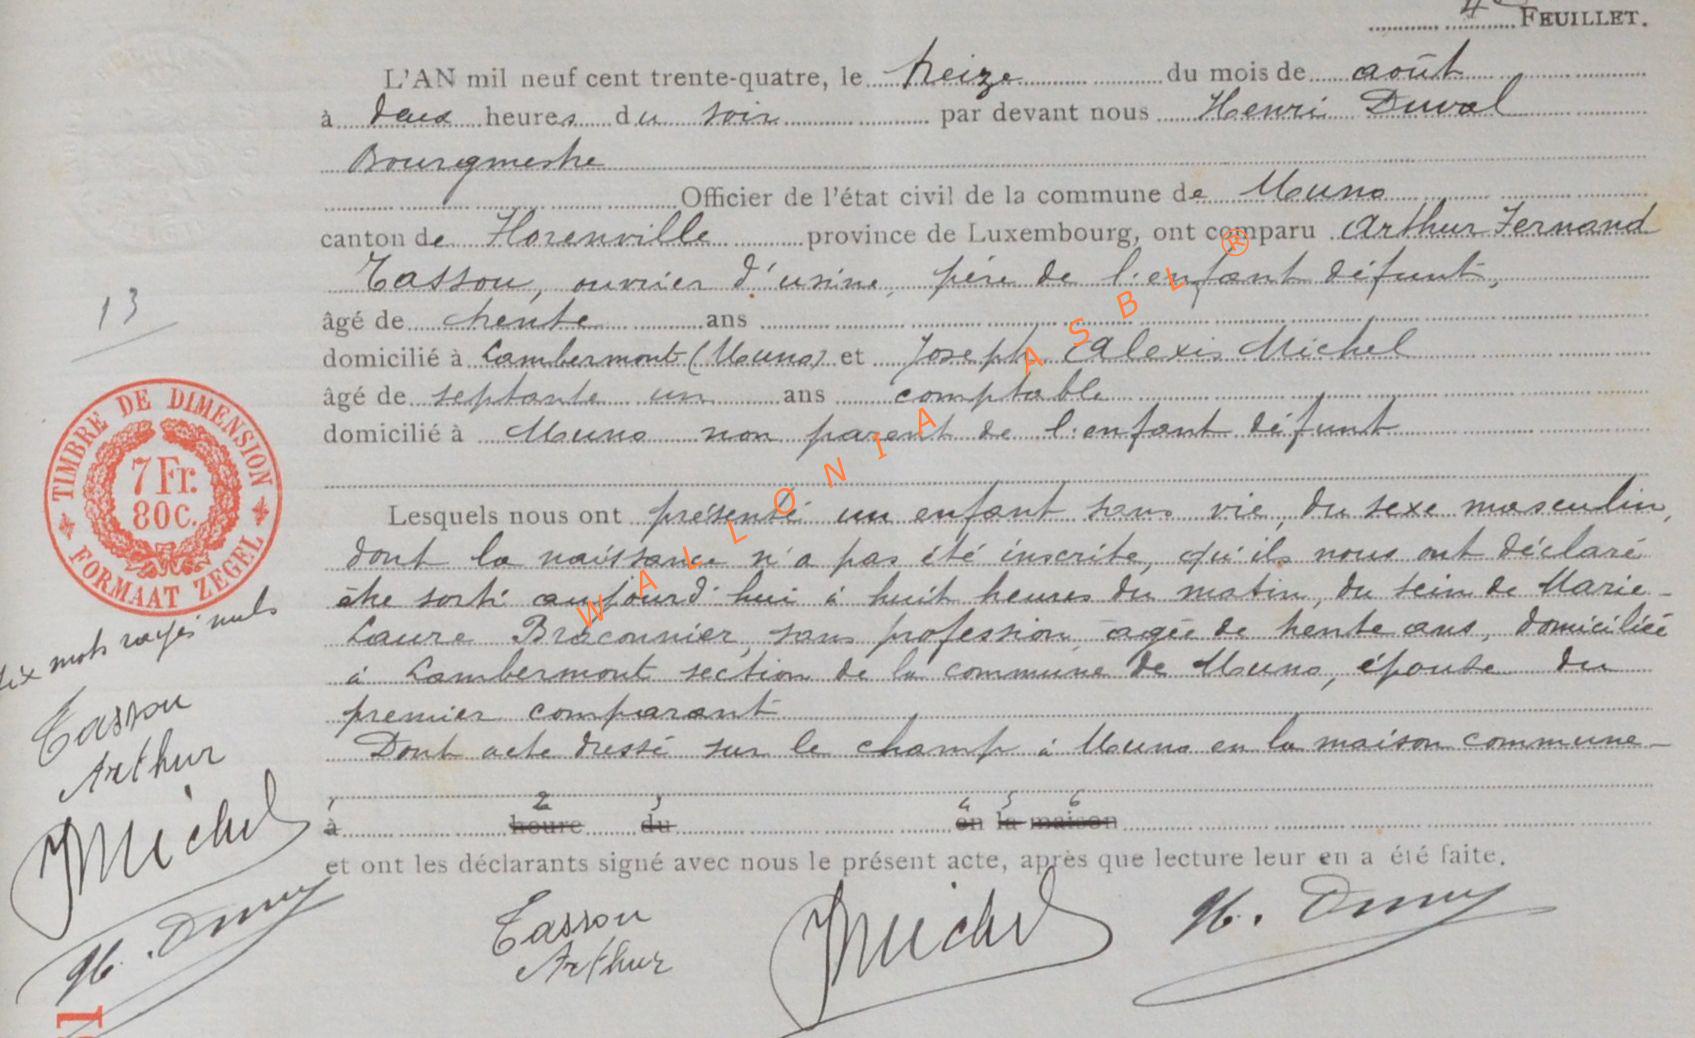 4e FEUILLET.
L'AN mil neuf cent trente-quatre, le treize du mois de août
à deux heures du soir par devant nous Henri Duval
Bourgmestre
Officier de l'état civil de la commune de Muno
canton de Florenville province de Luxembourg, ont comparu Arthur Fernand
Tassou, ouvrier d'usine, père de l'enfant défunt,
13
âgé de trente ans
domicilié à Lambermont (Muno) et Joseph Alexis Michel
âgé de septante un ans comptable
domicilié à Muno non parent de l'enfant défunt
Lesquels nous ont présenté un enfant sans vie, du sexe masculin,
dont la naissance n'a pas été inscrite, qu'ils nous ont déclaré
être sorti aujourd'hui à huit heures du matin, du sein de Marie-
Laure Braconnier, sans profession, âgée de trente ans, domiciliée
à Lambermont section de la commune de Muno, épouse du
premier comparant
Dont acte dressé sur le champ à Muno en la maison commune-
1 2 3 4 5 6
à heure du en la maison
et ont les déclarants signé avec nous le présent acte, après que lecture leur en a été faite.
Tassou
Arthur
Michel
TIMBRE DE DIMENSION
7 Fr.
80 C.
FORMAAT ZEGEL
six mots rayés nuls
Tassou
Arthur
Michel
WALLONIA ASBL ®